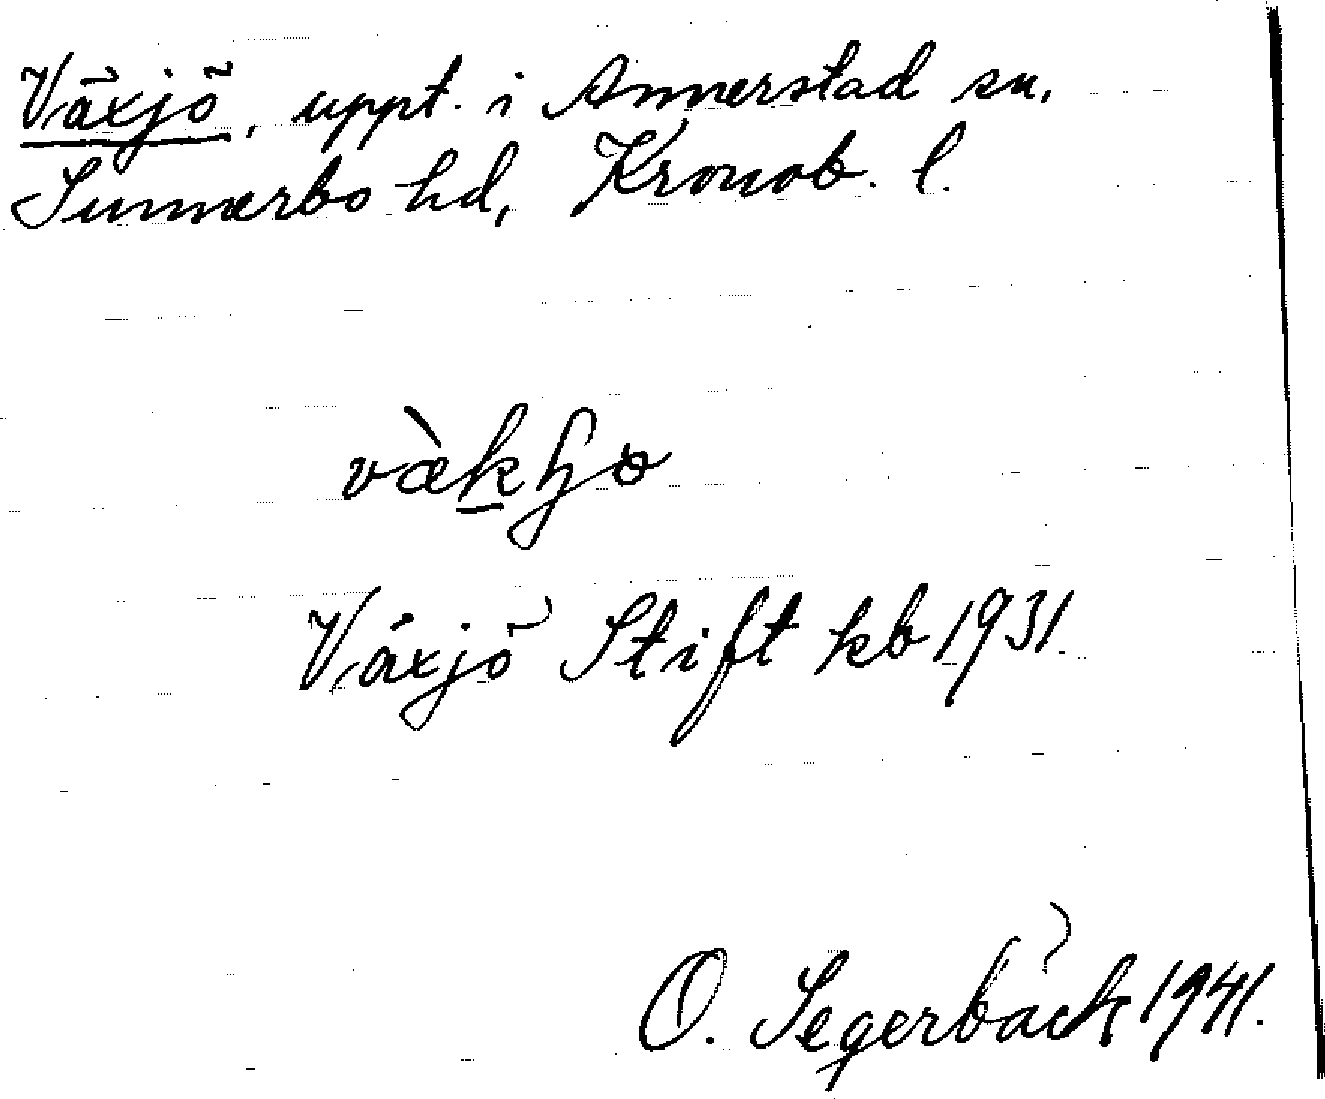 Växjö, uppt. i Annerstad sn,
Sunnerbo hd, Kronob. l.
vækɧo
Växjö Stift kb 1931.
O. Segerbäck 1941.